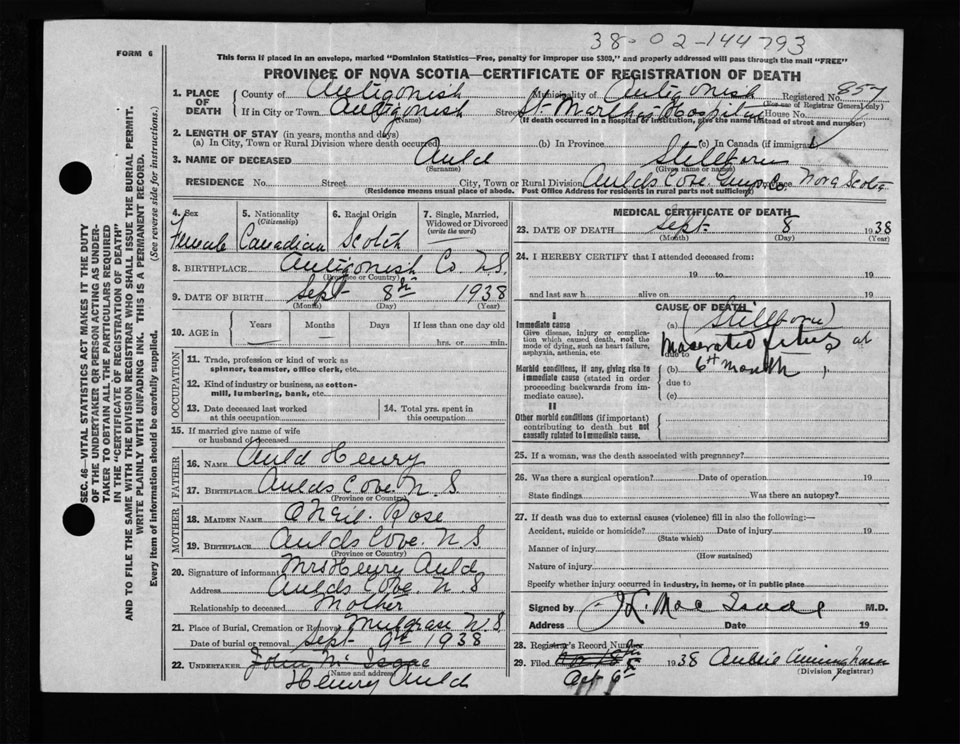 38-02-144793
FORM 6
This form if in an envelope, marked "Dominion Statistics—Free, penalty for improper use $300," and properly addressed will pass through the mail "FREE"
PROVINCE OF NOVA SCOTIA—CERTIFICATE OF REGISTRATION OF DEATH
SEC. 46—VITAL STATISTICS ACT MAKES IT THE DUTY
OF THE UNDERTAKER OR PERSON ACTING AS UNDER-
TAKER TO OBTAIN ALL THE PARTICULARS REQUIRED
IN THE "CERTIFICATE OF REGISTRATION OF DEATH"
AND TO FILE THE SAME WITH THE DIVISION REGISTRAR WHO SHALL ISSUE THE BURIAL PERMIT.
WRITE PLAINLY WITH UNFADING INK. THIS IS A PERMANENT RECORD.
Every item of information should be carefully supplied. (See reverse side for instructions.)
1. PLACE OF DEATH County of Antigonish Municipality of Antigonish Registered No. 857
(For use of Registrar General only)
If in City or Town Antigonish Street St. Martha's Hospital House No.
(Name) (If death occurred in a hospital or institution, give the name instead of street and number)
2. LENGTH OF STAY (in years, months and days)
(a) In City, Town or Rural Division where death occurred (b) In Province (c) In Canada (if immigrant)
3. NAME OF DECEASED Auld Stillborn
(Surname) (Given name or names)
RESIDENCE No. Street City, Town or Rural Division Aulds Cove Guys Co. Nova Scotia
(Residence means usual place of abode. Post Office Address for residents in rural parts not sufficient)
4. Sex Female
5. Nationality (Citizenship) Canadian
6. Racial Origin Scotch
7. Single, Married, Widowed or Divorced (write the word)
8. BIRTHPLACE Antigonish Co. N.S.
(Province or Country)
9. DATE OF BIRTH Sept 8th 1938
(Month) (Day) (Year)
10. AGE in Years Months Days If less than one day old
hrs. or min.
OCCUPATION
11. Trade, profession or kind of work as
spinner, teamster, office clerk, etc.
12. Kind of industry or business, as cotton-
mill, lumbering, bank, etc.
13. Date deceased last worked
at this occupation
14. Total yrs. spent in
this occupation
15. If married give name of wife
or husband of deceased
FATHER
16. NAME Auld Henry
17. BIRTHPLACE Aulds Cove N.S.
(Province or Country)
MOTHER
18. MAIDEN NAME O'Neil. Rose
19. BIRTHPLACE Aulds Cove. N.S
(Province or Country)
20. Signature of informant Mrs Henry Auld
Address Aulds Cove. N.S
Relationship to deceased Mother
21. Place of Burial, Cremation or Removal Mulgrave N.S
Date of burial or removal Sept 9th 1938
22. UNDERTAKER John Mc Isaac
(Name and address)
Henry Auld
MEDICAL CERTIFICATE OF DEATH
23. DATE OF DEATH Sept 8 1938
(Month) (Day) (Year)
24. I HEREBY CERTIFY that I attended deceased from:
19 to 19
and last saw h alive on 19
CAUSE OF DEATH
I
Immediate cause
Give disease, injury or complica-
tion which caused death, not the
mode of dying, such as heart failure,
asphyxia, asthenia, etc
(a) Stillborn
Macerated fetus at
due to
(b) 6th month
Morbid conditions, if any, giving rise to
immediate cause (stated in order
proceeding backwards from im-
mediate cause).
due to
(c)
II
Other morbid conditions (if important)
contributing to death but not
causally related to immediate cause.
25. If a woman, was the death associated with pregnancy?
26. Was there a surgical operation? Date of operation 19
State findings Was there an autopsy?
27. If death was due to external causes (violence) fill in also the following:—
Accident, suicide or homicide? Date of injury 19
(State which)
Manner of injury
(How sustained)
Nature of injury
Specify whether injury occurred in industry, in home, or in public place
Signed by J.L. MacIsaac M.D.
Address Date 19
28. Registrar's Record Number
29. Filed Oct 6th 1938
(Division Registrar)